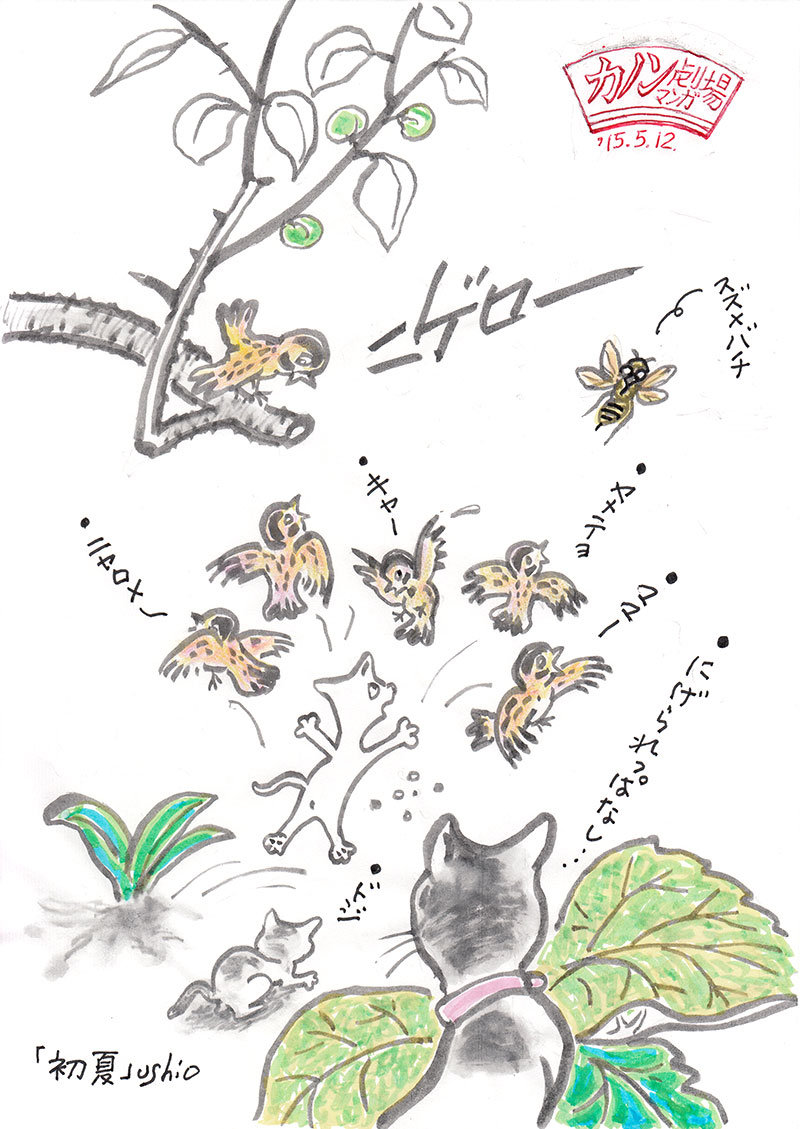 カノン劇場
マンガ
'15.5.12.
ニゲロー
スズメバチ
キャー
ヤメテヨ
ニャロメー
コワー
にげられっぱなし...
ジィッ
「初夏」ushio